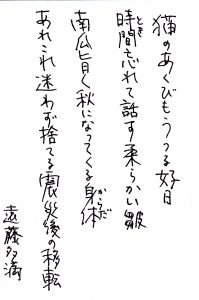 猫のあくびもうつる好日
時間忘れて話す柔らかい皺
とき
南瓜旨く秋になってくる身体
からだ
あれこれ迷わず捨てる震災後の移転
遠藤多満